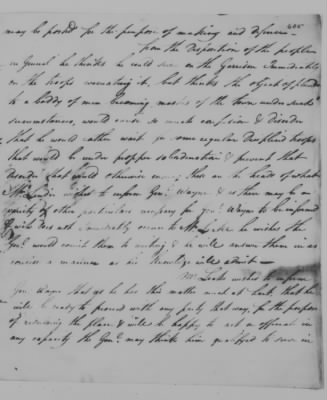 605
may be posted for the purpose of making and
from the Disposition of the people
in General he thinks he could on the Garrison Immediately
on the troops evacuating it, but thinks the object of plunder
to a boddy of men becoming masters of the Town under such
circumstances, would so much confusion & disorder
that he would rather wait for some regular Disciplined troops
that would be under propper subordination & prevent that
disorder that would otherwise ensue, these are the heads of what
Mr. wishes to inform Genl. Wayne & as there may be a
of other particulars necessary for Genl. Wayne to be informed
of which does not immediately occur to Mr. he wishes the
Genl. would commit them to writing, & he will answer them in as
concise a manner as his knowledge will admit —
Mr. wishes to inform
Gen. Wayne that as he has this matter much at heart, that he
will be ready to proceed with any party that way, for the purpose
of the place & will be happy to act as official in
any capacity the Genl. may think him qualified to serve in